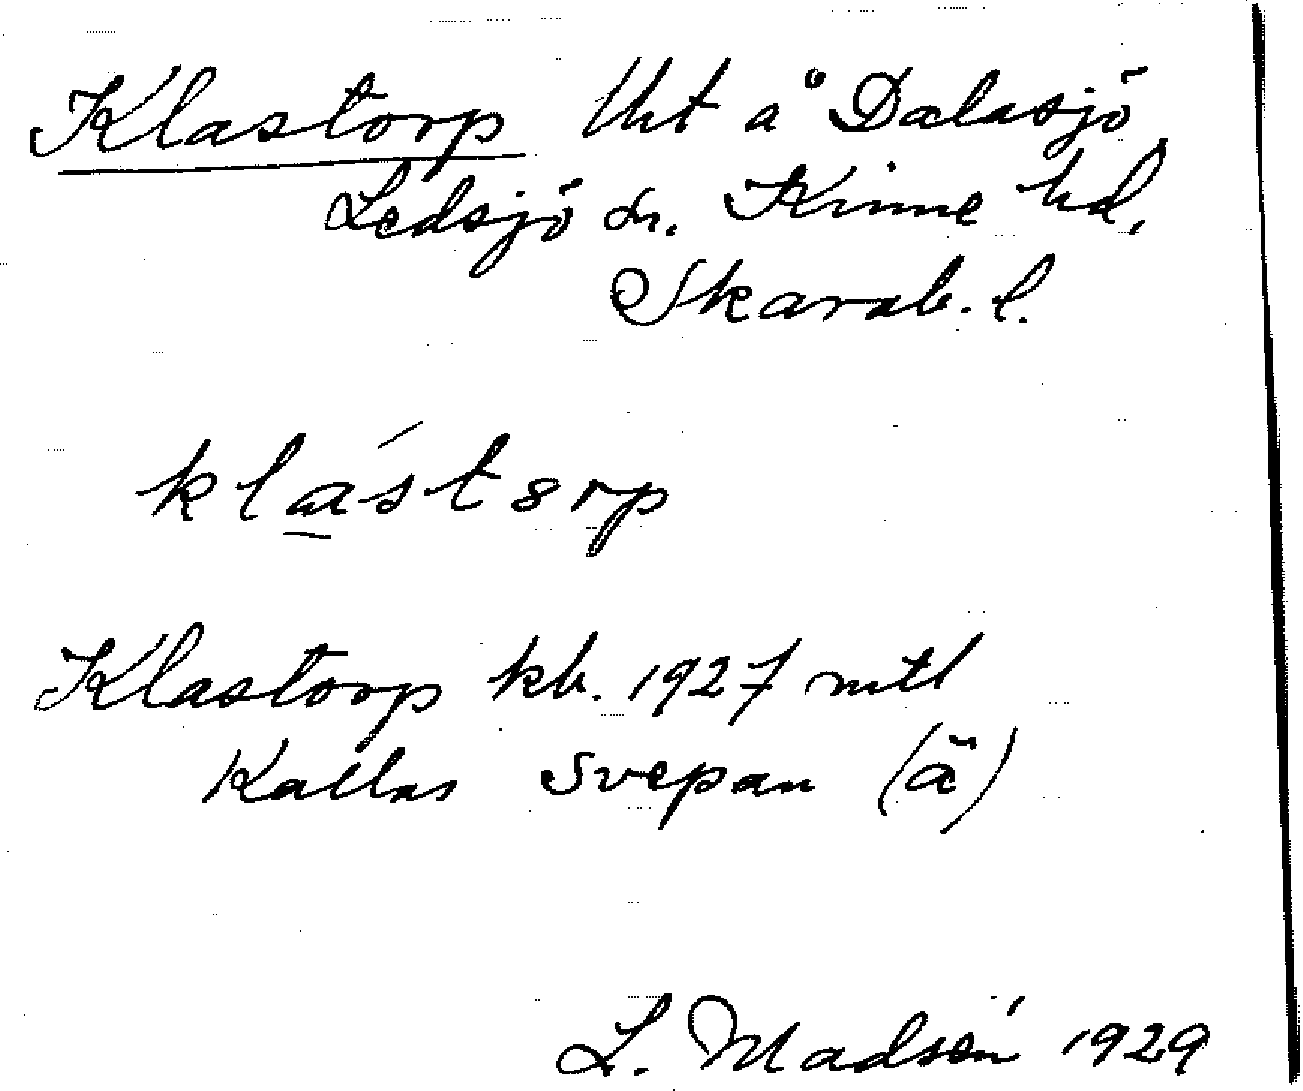 Klastorp lht å Dalasjö
Ledsjö sn. Kinne hd.
Skarab. l.
klástorp
Klastorp kb. 1927 mtl
Kallas Svepan (ä)
L. Madsén 1929